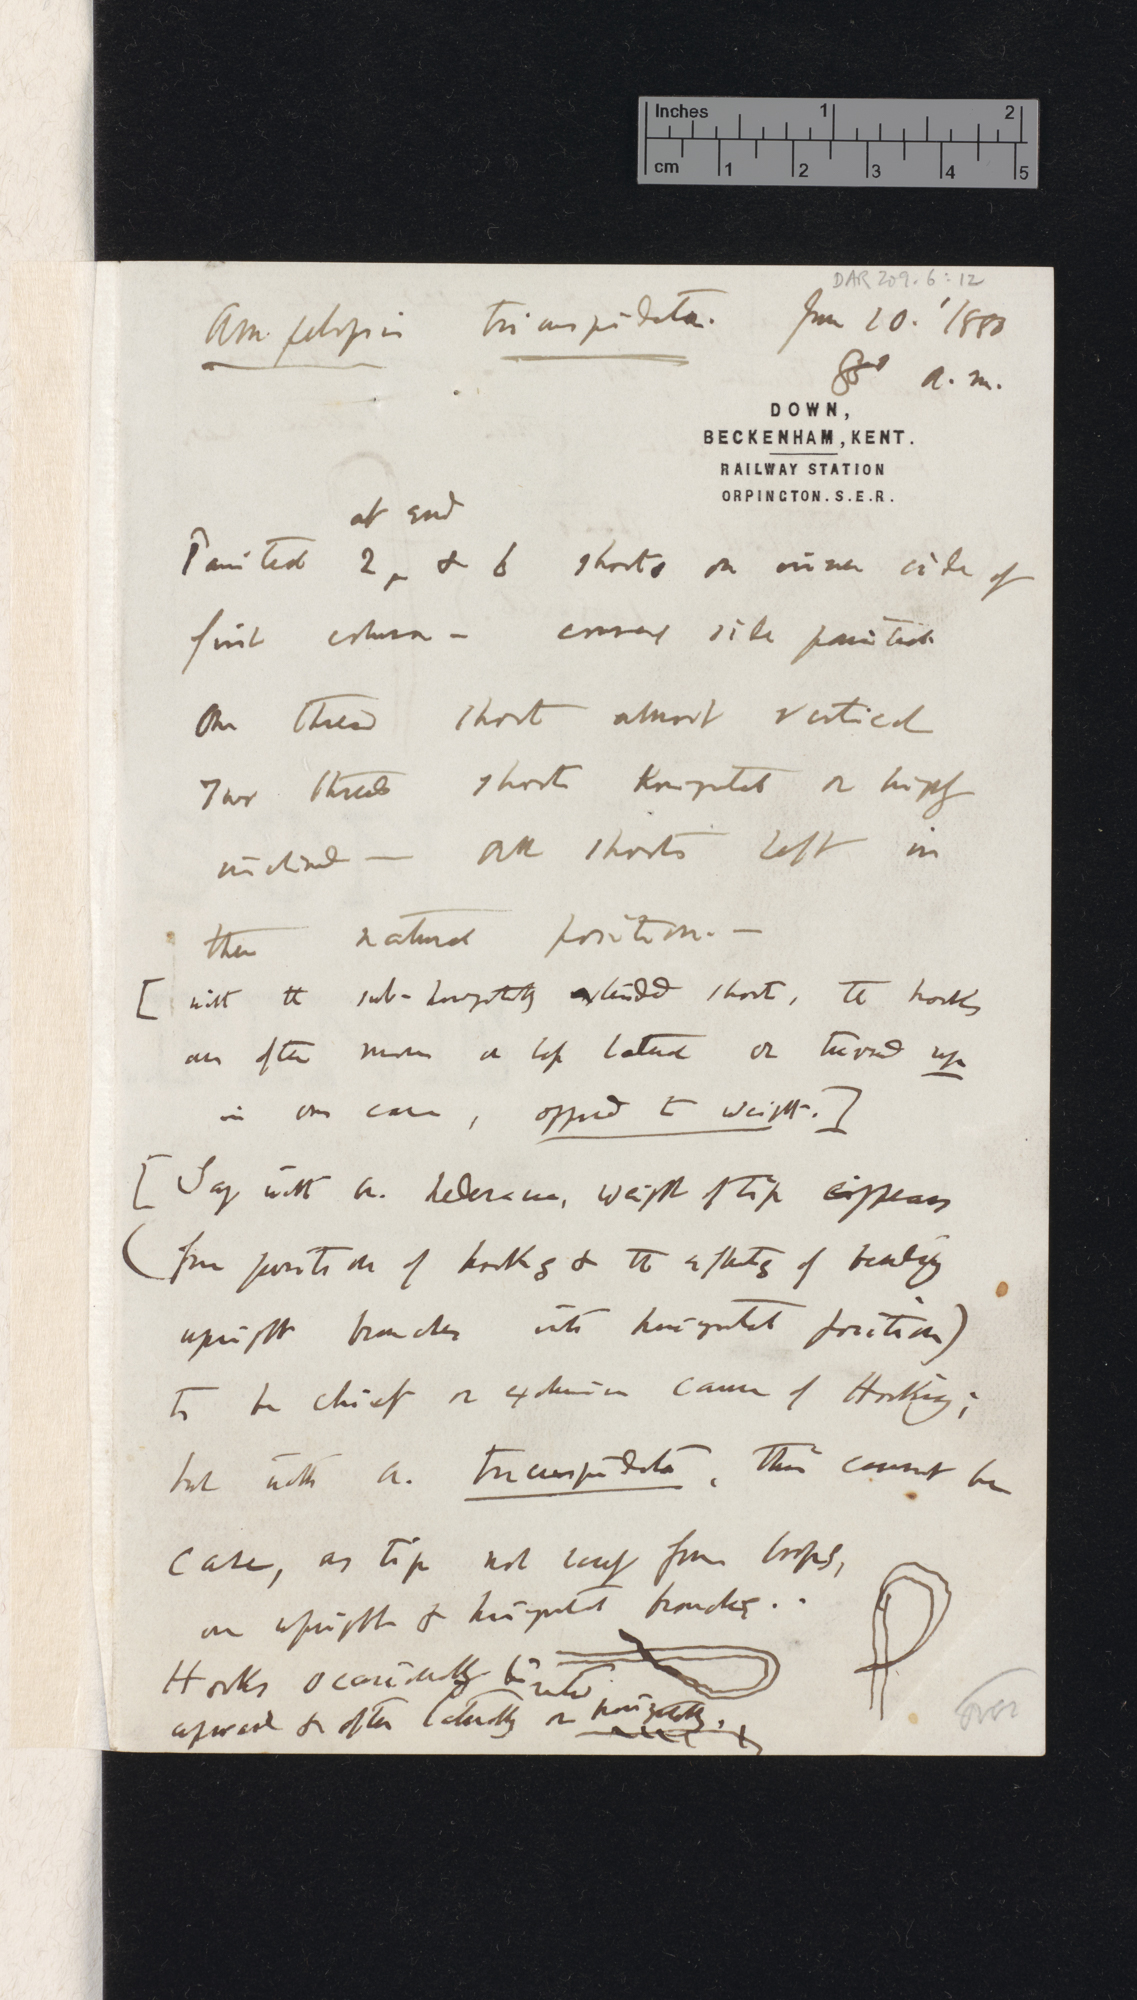 Inches 1 2
cm 1 2 3 4 5
DAR 209.6:12
Ampelopsis tricuspidata. June 20.' 1880
8° a.m.
DOWN,
BECKENHAM, KENT.
RAILWAY STATION
ORPINGTON. S.E.R.
at end
Painted 2, & 6 shoots on inner side of
first column — convex side painted
One thread shoot almost vertical
Two threads shoots horizontal or highly
inclined — All shoots left in
their natural position. —
[ with the sub-horizontally extended shoots, the hooks
are often more or less lateral or turned up
in one case, opposed to weight. ]
[ Say with A. hederacea, weight of tip appears
(from position of hooks & the effects of bending
upright branches into horizontal position)
to be chief or exclusive cause of Hooking;
but with A. tricuspidata, this cannot be
case, as tip not long from hooks,
on upright & horizontal branches..
Hooks occasionally
upward & often laterally or horizontally.
over